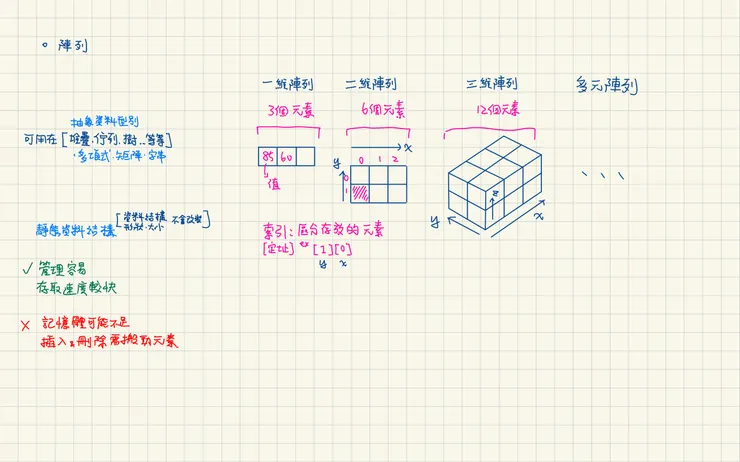 陣列
一維陣列 二維陣列 三維陣列 多元陣列
3個元素 6個元素 12個元素
抽象資料型別
可用在[堆疊、佇列、樹...等等]
多項式、矩陣、字串
85 60
值
x
y
0 1 2
0
1
z
y
x
靜態資料結構[資料結構 不會改變]
形狀、大小
索引:區分存放的元素
[定址] ex [1][0]
y x
✓ 管理容易
存取速度較快
× 記憶體可能不足
插入&刪除需搬動元素